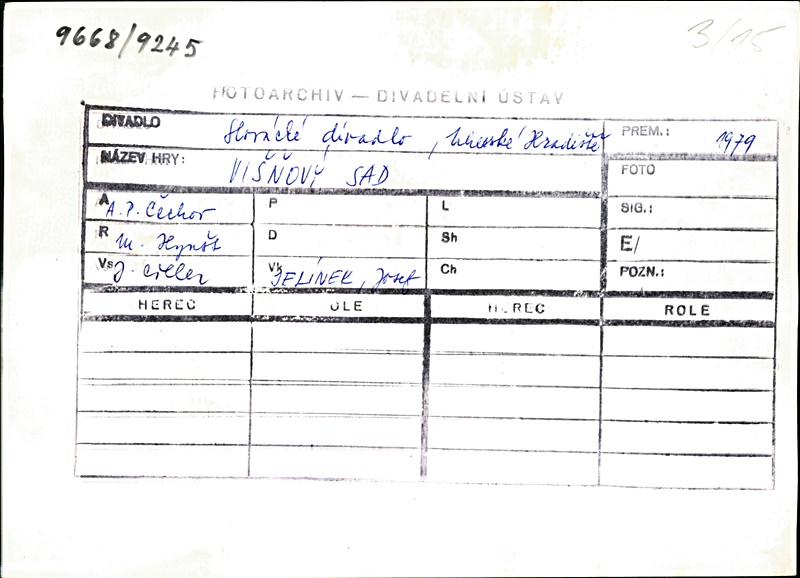 9668/9245
3/15
FOTOARCHIV — DIVADELNÍ ÚSTAV
DIVADLO Slovácké divadlo, Uherské Hradiště PREM.: 1979
NÁZEV HRY: VIŠŇOVÝ SAD FOTO
A A.P. Čechov P L SIG.:
R M. Hynšt D Sh E/
Vs J. Ciller Vk JELÍNEK, Josef Ch POZN.:
HEREC OLE HEREC ROLE